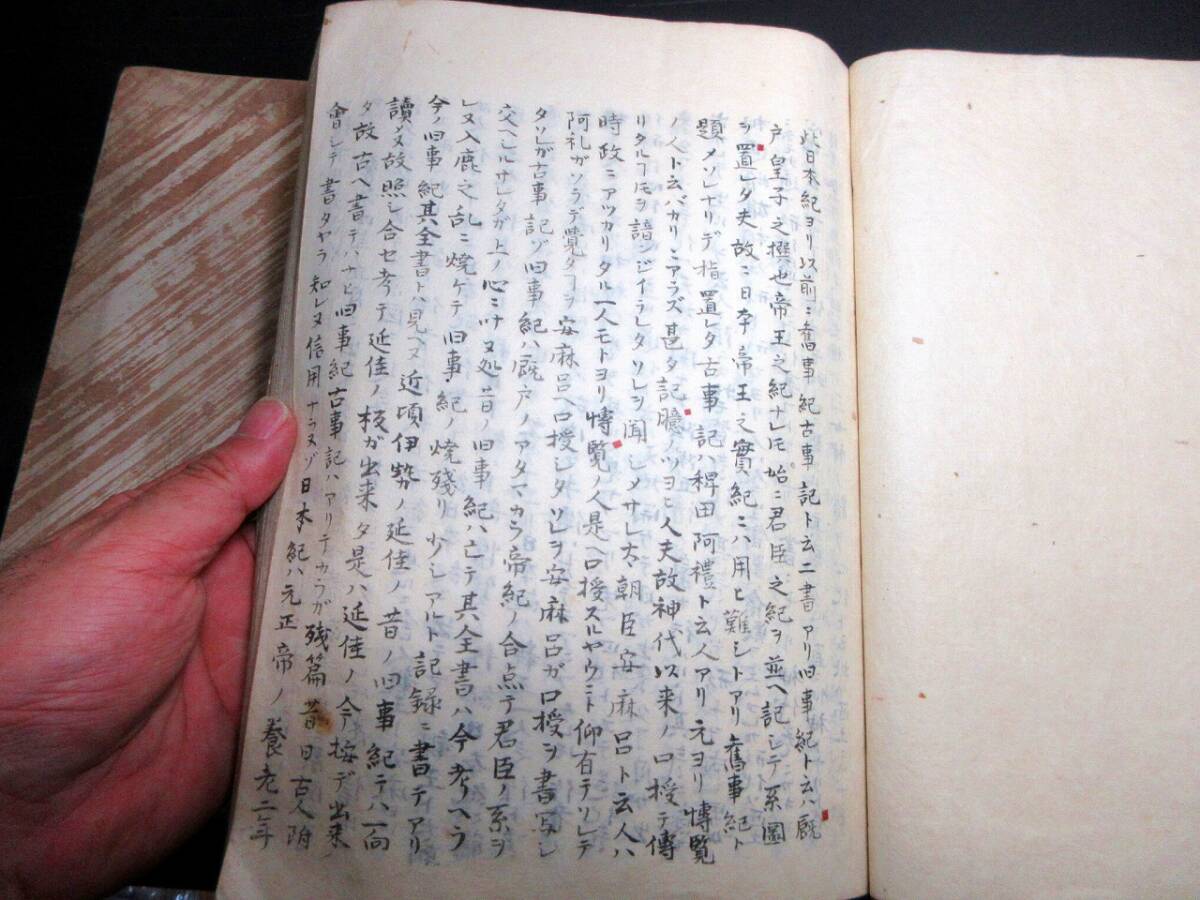 此日本紀ヨリ以前ニ舊事紀古事記ト云二書アリ旧事紀ト云ハ厩
戸皇子之撰也帝王之紀ナレ𪜈始ニ君臣之紀ヲ並ヘ記シテ系圖
ヲ置レタ夫故ニ日本帝王之實紀ニハ用ヒ難シトアリ舊事紀ト
題メソレナリデ指置レタ古事記ハ稗田阿禮ト云人アリ元ヨリ博覧
ノ人ト云バカリニアラズ甚タ記臆ノツヨヒ人夫故神代以来ノ口授テ傳
リタルヿ𪜈ヲ諳ンジイラレタソレヲ聞シメサレ太朝臣安麻呂ト云人ハ
時政ニアツカリタル一人モトヨリ博覧ノ人是ヘ口授スルヤウニト仰有テソレテ
阿礼ガソラデ覺タヿヲ安麻呂ヘ口授シタソレヲ安麻呂ガ口授ヲ書写シ
タソレガ古事記ゾ旧事紀ハ厩戸ノアタマカラ帝紀ノ合点テ君臣ノ系ヲ
交ヘシルサレタガ上ノ心ニ叶ヌ処昔ノ旧事紀ハ亡テ其全書ハ今考ヘラ
レヌ入鹿之乱ニ焼ケテ旧事紀ノ焼残リ少シアルト記録ニ書テアリ
今ノ旧事紀其全書トハ見ヘヌ近頃伊勢ノ延佳ノ昔ノ旧事紀テハ一向
讀メヌ故照シ合セ考テ延佳ノ校ガ出来タ是ハ延佳ノ今按デ出来
タ故古ヘ書テハナヒ旧事紀古事記ハアリテカラガ残篇昔日古人附
會シテ書タヤラ知レヌ信用ナラヌゾ日本紀ハ元正帝ノ養老二年